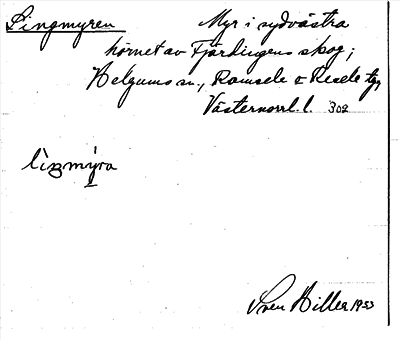 Lingmyren Myr i sydvästra
hörnet av Fjärdingens skog;
Helgums sn, Ramsele & Resele tg,
Västernorrl. l. 302
lìŋmýra
Sven Hiller 1933